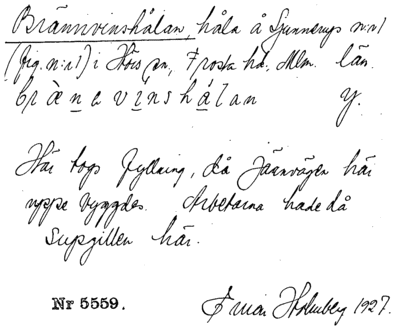 Brännvinshålan, håla å Sjunnerup n:r 1
(fig. n:r 1) i Hörs sn, Frosta hd, Mlm. län.
bränevinshålan y.
Här togs fyllning, då järnvägen här
uppe byggdes. Arbetarna hade då
supgillen här.
Nr 5559. Ernar Holmberg 1927.